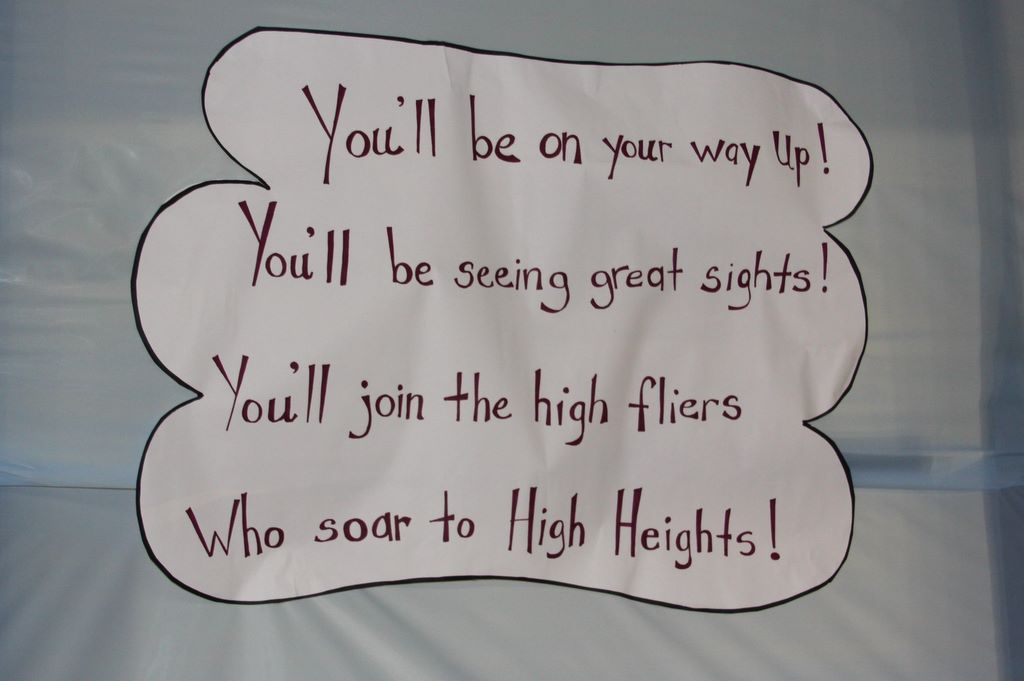 You'll be on your way Up!
You'll be seeing great sights!
You'll join the high fliers
Who soar to High Heights!